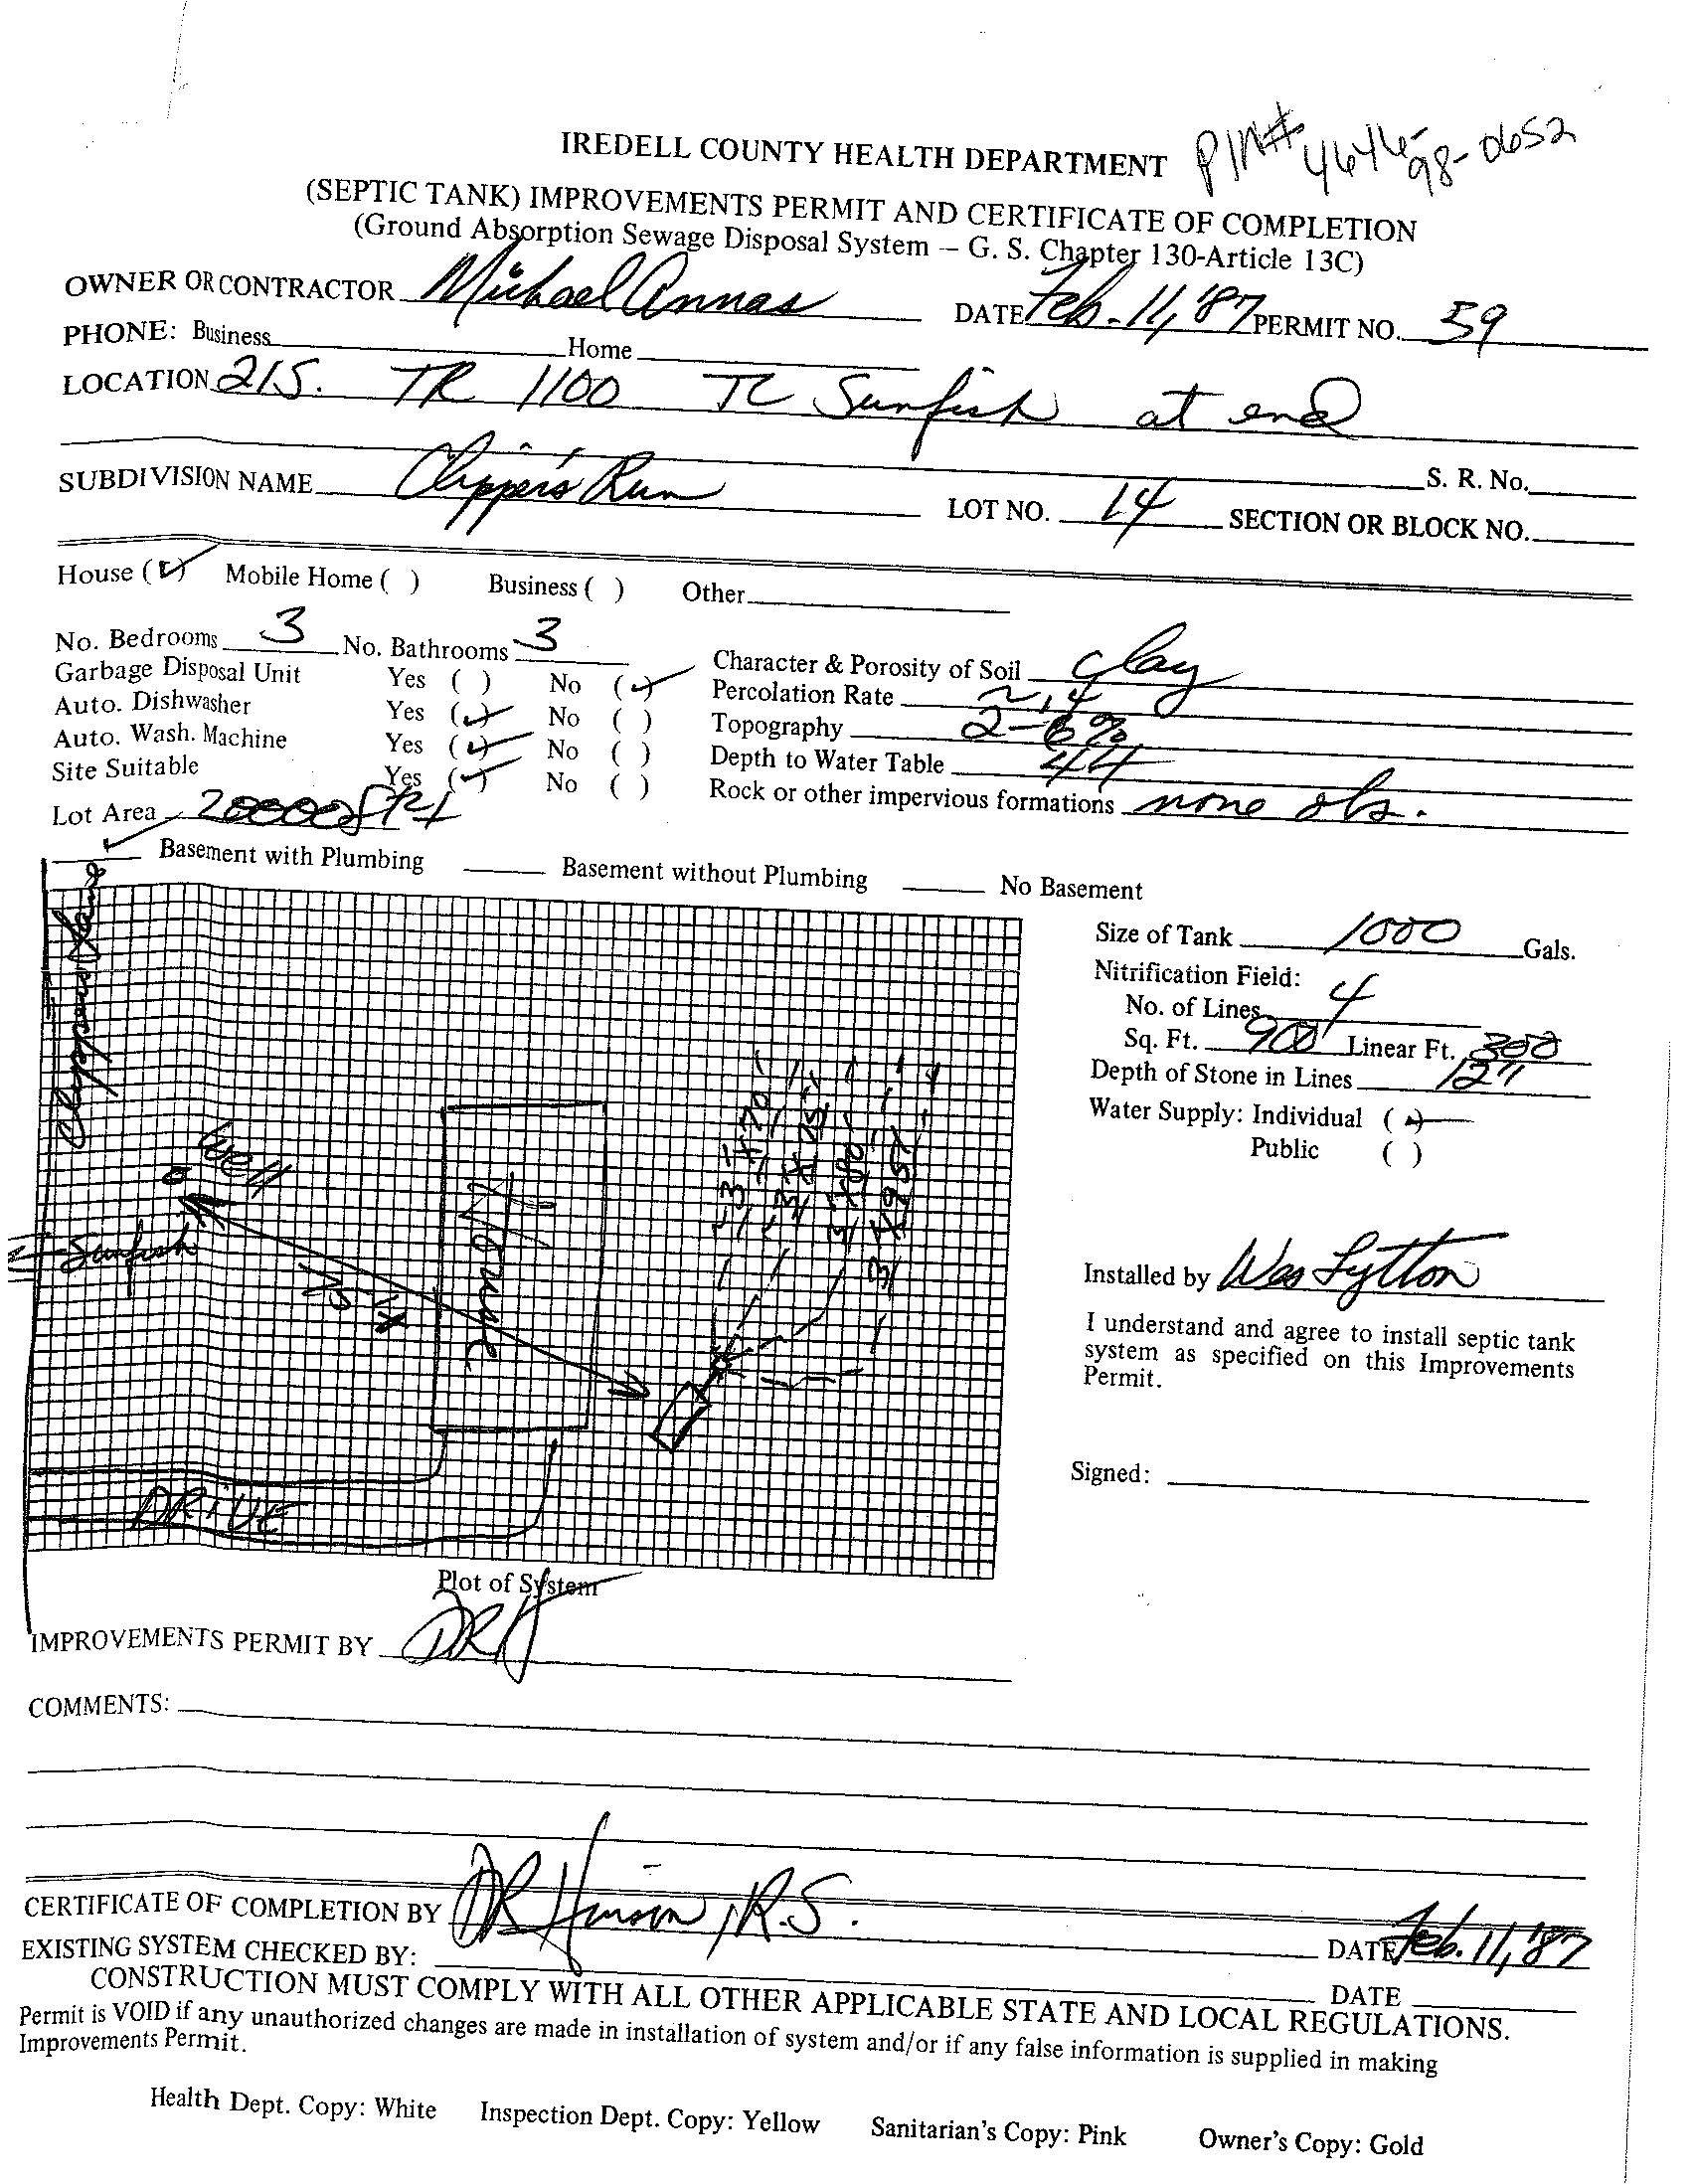 IREDELL COUNTY HEALTH DEPARTMENT PIN# 4646-98-0652
(SEPTIC TANK) IMPROVEMENTS PERMIT AND CERTIFICATE OF COMPLETION
(Ground Absorption Sewage Disposal System – G. S. Chapter 130-Article 13C)
OWNER OR CONTRACTOR Michael Annas DATE Feb. 11, '87 PERMIT NO. 59
PHONE: Business Home
LOCATION 21S. TR 1100 TL Sunfish at end
S. R. No.
SUBDIVISION NAME Clipper's Run LOT NO. 14 SECTION OR BLOCK NO.
House (✓) Mobile Home ( ) Business ( ) Other
No. Bedrooms 3 No. Bathrooms 3
Garbage Disposal Unit Yes ( ) No (✓)
Auto. Dishwasher Yes (✓) No ( )
Auto. Wash. Machine Yes (✓) No ( )
Site Suitable Yes (✓) No ( )
Lot Area
Character & Porosity of Soil clay
Percolation Rate ~.4
Topography 2-6%
Depth to Water Table
Rock or other impervious formations none obs.
✓ Basement with Plumbing Basement without Plumbing No Basement
Size of Tank 1000 Gals.
Nitrification Field:
No. of Lines 4
Sq. Ft. 900 Linear Ft. 300
Depth of Stone in Lines 12"
Water Supply: Individual (✓)
Public ( )
Well
Sunfish
House
3'x70'
3'x80'
3'x95'
DRIVE
Installed by Wes Lytton
I understand and agree to install septic tank
system as specified on this Improvements
Permit.
Signed:
Plot of System
IMPROVEMENTS PERMIT BY DRH
COMMENTS:
CERTIFICATE OF COMPLETION BY DR Hinson, R.S. DATE Feb. 11, '87
EXISTING SYSTEM CHECKED BY: DATE
CONSTRUCTION MUST COMPLY WITH ALL OTHER APPLICABLE STATE AND LOCAL REGULATIONS.
Permit is VOID if any unauthorized changes are made in installation of system and/or if any false information is supplied in making
Improvements Permit.
Health Dept. Copy: White Inspection Dept. Copy: Yellow Sanitarian's Copy: Pink Owner's Copy: Gold